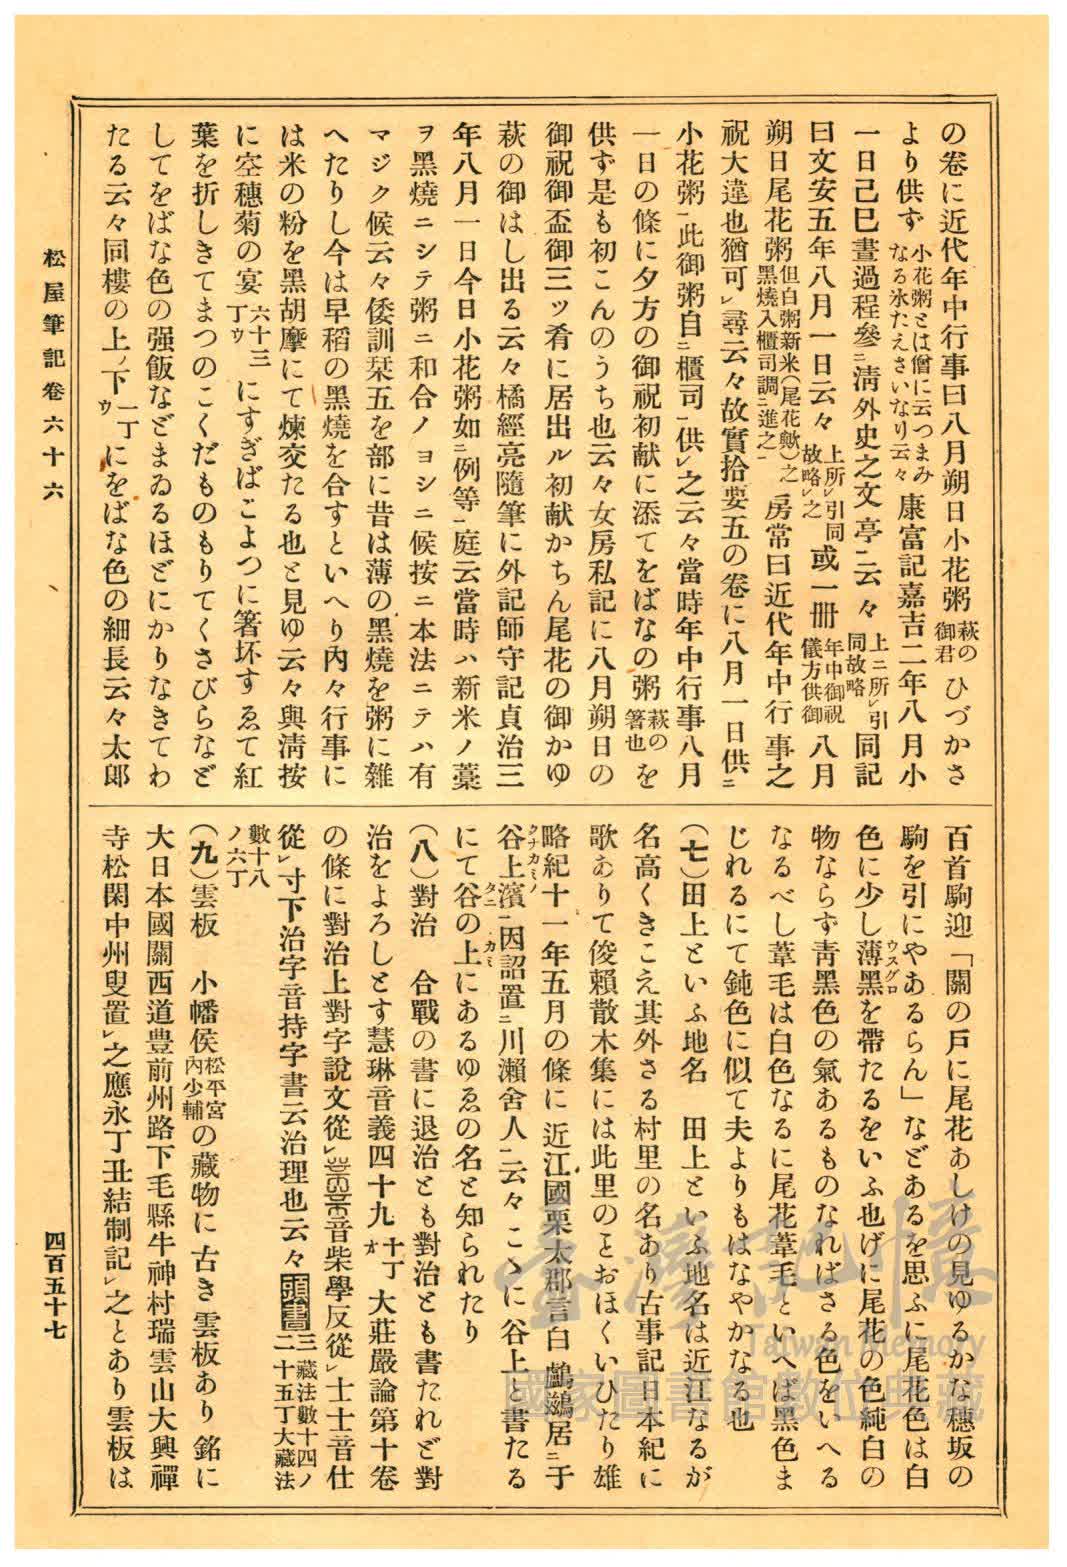 の卷に近代年中行事曰八月朔日小花粥萩の御君ひづかさ
より供ず小花粥とは僧に云つまみなる氷たえさいなり云々康富記嘉吉二年八月小
一日己巳晝過程參ニ淸外史之文亭ニ云々上ニ所レ引同故略同記
曰文安五年八月一日云々上所レ引同故略レ之或一册年中御祝儀方供御八月
朔日尾花粥但白粥新米(尾花歟)之黑燒入櫃司調ニ進之一房常曰近代年中行事之
祝大違也猶可レ尋云々故實拾要五の卷に八月一日供ニ
小花粥一此御粥自ニ櫃司一供レ之云々當時年中行事八月
一日の條に夕方の御祝初献に添てをばなの粥萩の箸也を
供ず是も初こんのうち也云々女房私記に八月朔日の
御祝御盃御三ッ肴に居出ル初献かちん尾花の御かゆ
萩の御はし出る云々橘經亮隨筆に外記師守記貞治三
年八月一日今日小花粥如ニ例等一庭云當時ハ新米ノ藁
ヲ黑燒ニシテ粥ニ和合ノヨシニ候按ニ本法ニテハ有
マジク候云々倭訓栞五を部に昔は薄の黑燒を粥に雜
へたりし今は早稻の黑燒を合すといへり內々行事に
は米の粉を黑胡摩にて煉交たる也と見ゆ云々與淸按
に空穗菊の宴六十三丁ウにすぎばこよつに箸坏すゑて紅
葉を折しきてまつのこくだものもりてくさびらなど
してをばな色の强飯などまゐるほどにかりなきてわ
たる云々同樓の上ノ下一丁ウにをばな色の細長云々太郎
百首駒迎「關の戶に尾花あしけの見ゆるかな穗坂の
駒を引にやあるらん」などあるを思ふに尾花色は白
色に少し薄黑ウスグロを帶たるをいふ也げに尾花の色純白の
物ならず靑黑色の氣あるものなればさる色をいへる
なるべし葦毛は白色なるに尾花葦毛といへば黑色ま
じれるにて鈍色に似て夫よりもはなやかなる也
(七)田上といふ地名　田上といふ地名は近江なるが
名高くきこえ其外さる村里の名あり古事記日本紀に
歌ありて俊賴散木集には此里のことおほくいひたり雄
略紀十一年五月の條に近江國栗太郡言白鸕鷀居ニ于
谷上濱タナカミノ一因詔置ニ川瀨舍人一云々こゝに谷上と書たる
にて谷タニの上カミにあるゆゑの名と知られたり
(八)對治　合戰の書に退治とも對治とも書たれど對
治をよろしとす慧琳音義四十九十丁オ大莊嚴論第十卷
の條に對治上對字說文從レ丵音柴學反從レ士士音仕
從レ寸下治字音持字書云治理也云々頭書三藏法數十四ノ二十五丁大藏法
數十八ノ六丁
(九)雲板　小幡侯松平宮內少輔の藏物に古き雲板あり銘に
大日本國關西道豊前州路下毛縣牛神村瑞雲山大興禪
寺松閑中州叟置レ之應永丁丑結制記レ之とあり雲板は
松屋筆記卷六十六
四百五十七
臺灣記憶
Taiwan Memory
國家圖書館數位典藏